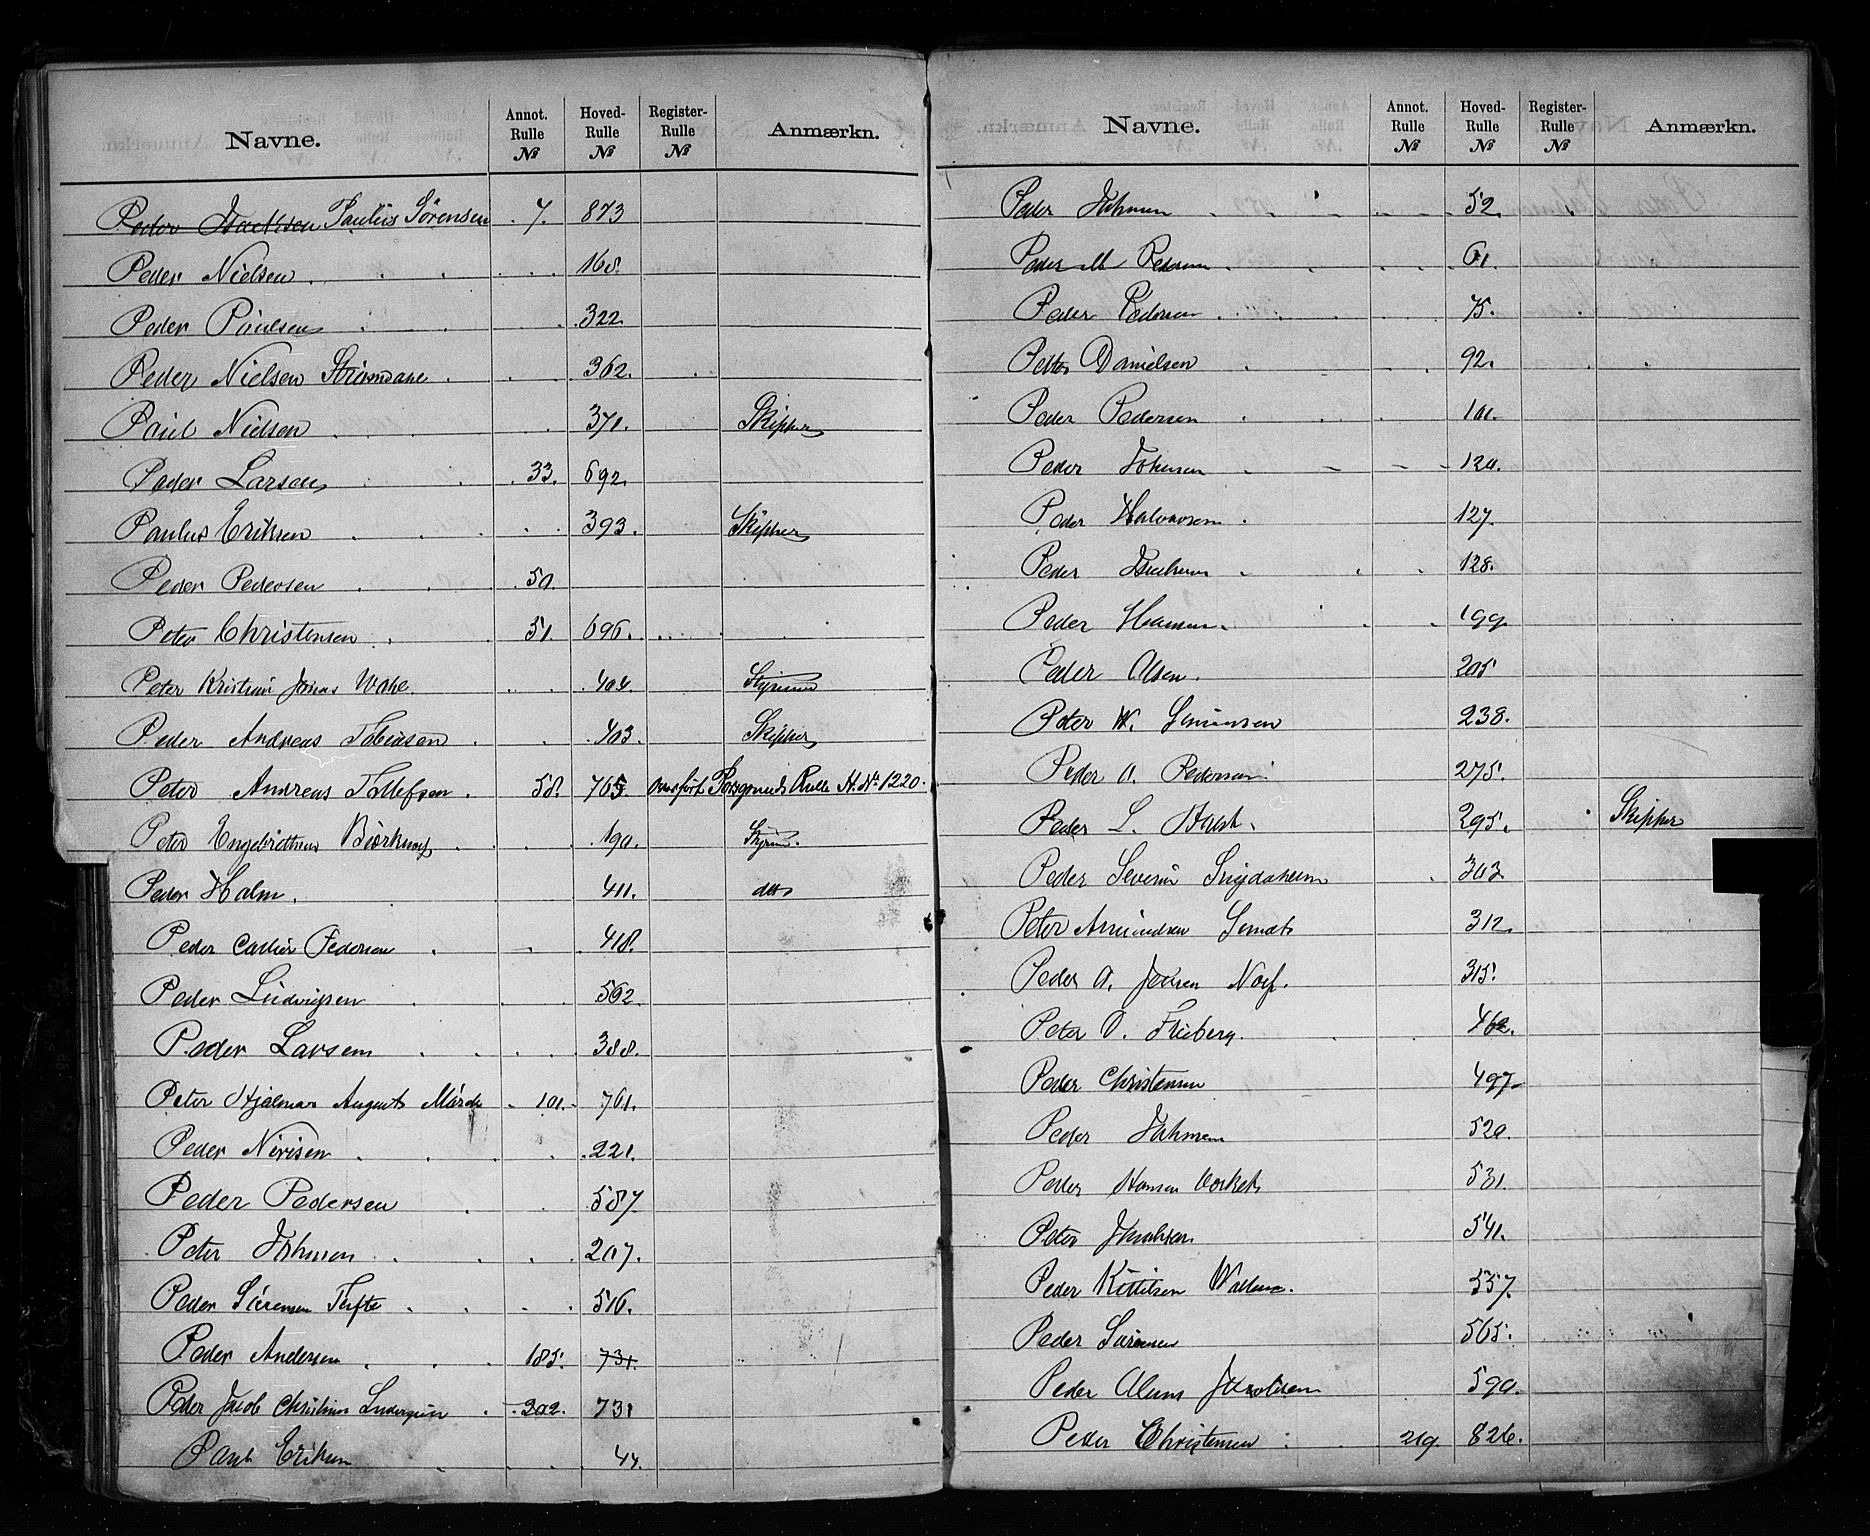 Navne. Annot. Rulle № Hoved-Rulle № Register-Rulle № Anmærkn.
Peder Isacksen Paulus Sørensen 7. 873
Peder Nielsen 168.
Peder Paulsen 322.
Peder Nielsen 362.
Paul Nielsen 371. Skipper
Peder Larsen 33. 692.
Paulus Eriksen 393. Skipper
Peder Pedersen 50.
Peter Christensen 51. 696.
Peter Kristian Jonas Wahl 404.
Peder Andreas Tobiasen 403. Skipper
Peter Andreas Tollefsen 58. 765. overført Porsgrunds Rulle H. № 1220.
Peter Engebrethsen 190.
Peder Holm. 411. do
Peder Pedersen 418.
Peder Ludvigsen 562.
Peder Larsen 388.
Peter Hjalmar August 101. 761.
Peder Nirisen 221.
Peder Pedersen 587.
Peter Johnsen 207.
Peder Sørensen Tufte 516.
Peder Andersen 185. 731.
Peder Jacob Christian Ludvigsen 202. 731
Paul Eriksen 44.
Navne. Annot. Rulle № Hoved-Rulle № Register-Rulle № Anmærkn.
Peder Johnsen 52.
Peder M Pedersen 61.
Peder Pedersen 75.
Petter Danielsen 92.
Peder Pedersen 101.
Peder Johnsen 120.
Peder Halvorsen 127.
Peder 128.
Peder Hansen 199.
Peder Olsen. 205
Peter W. Simonsen 238.
Peder A. Pedersen 275.
Peder L. Holst. 295. Skipper
Peder Severin 303
Peter Amundsen 312
Peder A. Jensen 315.
Peter O. Frieberg. 462.
Peder Christensen 497
Peder Johnsen 520.
Peder Hansen 531.
Peter Jacobsen 541.
Peder Kittilsen 557.
Peder Sørensen 565.
Peder 590.
Peder Christensen 219. 826.